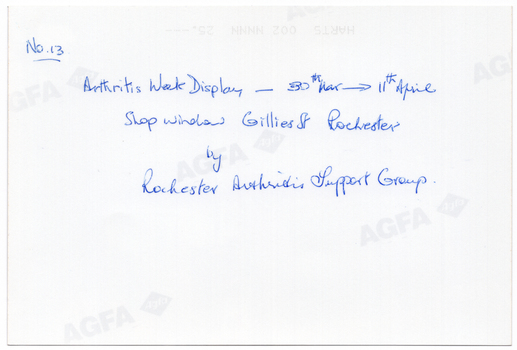 No. 13
Arthritis Week Display — 30th Mar → 11th April
Shop window Gillies St Rochester
by
Rochester Arthritis Support Group.
AGFA
AGFA
AGFA
AGFA
AGFA